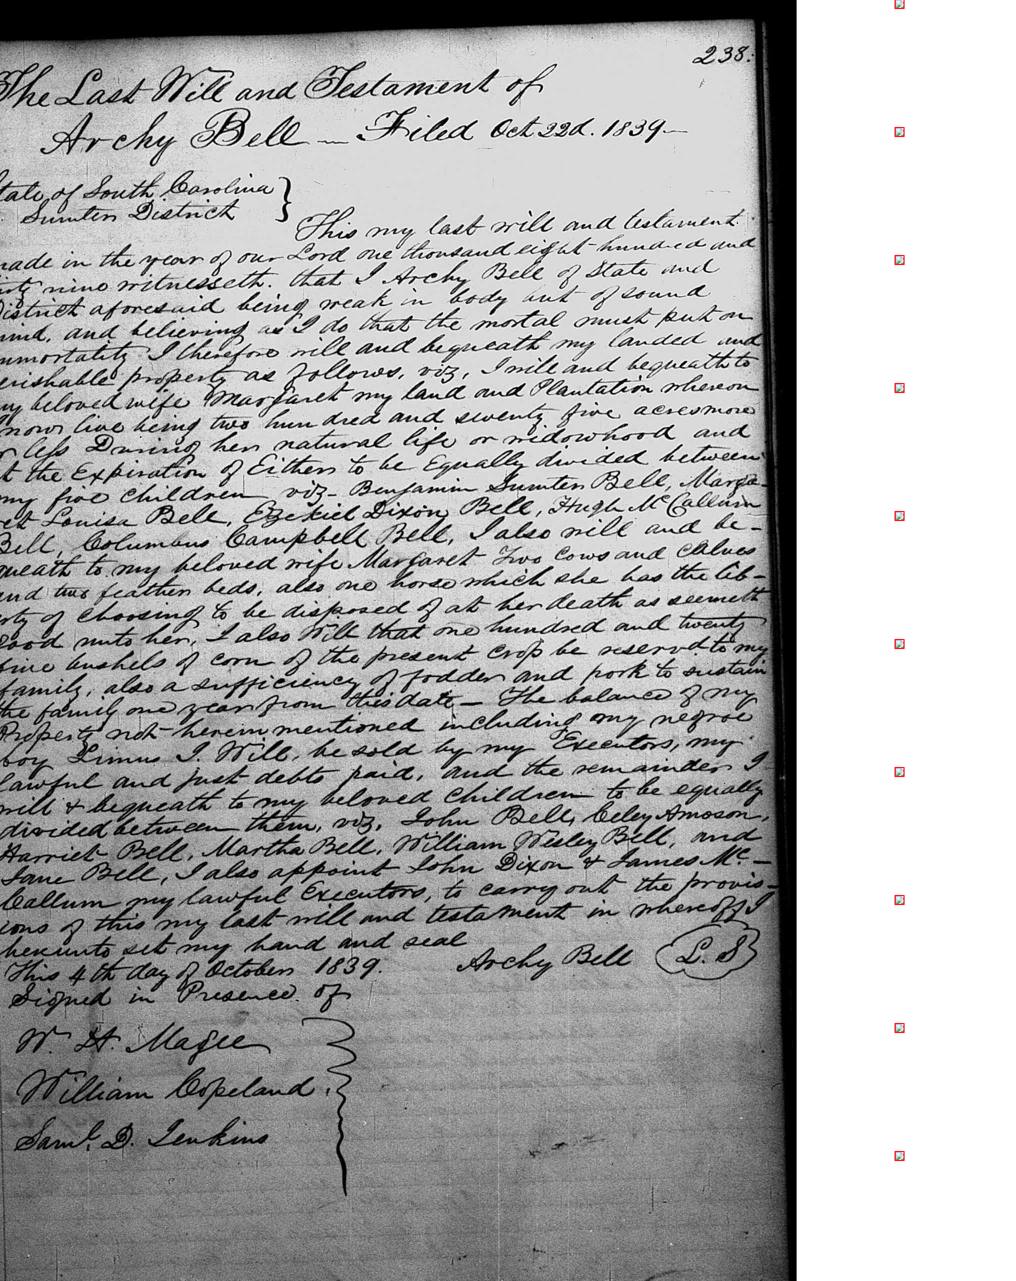 238.
The Last Will and Testament of
Archy Bell — Filed Oct 22d. 1839 —
tate of South Carolina }
Sumter District }
This my last will and testament
nade in the year of our Lord one thousand eight hundred and
irty nine witnesseth. that I Archy Bell of State and
istrict aforesaid being weak in body but of sound
mind, and believing as I do that the mortal must put on
mmortality I therefore will and bequeath my landed and
erishable property as follows, viz, I will and bequeath to
my beloved wife Margaret my land and Plantation whereon
now live being two hundred and seventy five acres more
r less During her natural life or widowhood and
t the Expiration of Either to be Equally divided between
my five children viz- Benjamin Sumter Bell, Marga-
ret Louisa Bell, Ezekiel Dixon Bell, Hugh McCallum
Bell, Columbus Campbell Bell, I also will and be-
queath to my beloved wife Margaret Two Cows and Calves
and two feather beds, also one horse which she has the lib-
erty of choosing to be disposed of at her death as seemeth
good unto her, I also Will that one hundred and twenty
five bushels of corn of the present crop be reservd to my
family, also a sufficiency of fodder and pork to sustain
the family one year from this date — The balance of my
Property not herein mentioned including my negroe
boy Limus I. Will, be sold by my Executors, my
lawful and just debts paid, and the remainder I
will & bequeath to my beloved children to be equally
divided between them, viz, John Bell, Celey Amoson,
Harriet Bell, Martha Bell, William Wesley Bell, and
Jane Bell, I also appoint John Dixon & James Mc-
Callum my lawful Executors, to carry out the provis-
ions of this my last will and testament in whereoff I
hereunto set my hand and seal
This 4th day of October 1839. Archy Bell L.S
Signed in Presence of
W. H. Magee
William Copeland.
Saml. D. Jenkins